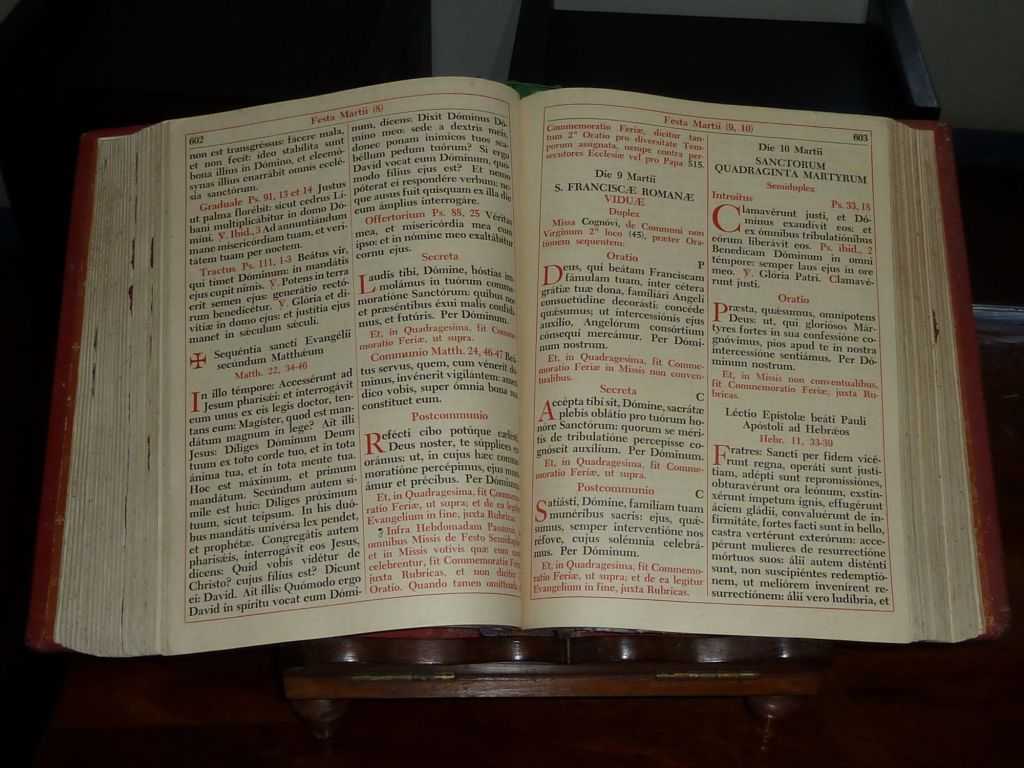 Festa Martii (8)
602
non est transgréssus: fácere mala,
et non fecit: ideo stabilíta sunt
bona illíus in Dómino, et eleemó-
synas illíus enarrábit omnis ecclé-
sia sanctórum.
Graduale Ps. 91, 13 et 14 Justus
ut palma florébit: sicut cedrus Lí-
bani multiplicábitur in domo Dó-
mini. ℣. Ibid., 3 Ad annuntiándum
mane misericórdiam tuam, et veri-
tátem tuam per noctem.
Tractus Ps. 111, 1-3 Beátus vir,
qui timet Dóminum: in mandátis
ejus cupit nimis. ℣. Potens in terra
erit semen ejus: generátio rectó-
rum benedicétur. ℣. Glória et di-
vítiæ in domo ejus: et justítia ejus
manet in sǽculum sǽculi.
✠ Sequéntia sancti Evangélii
secúndum Matthǽum
Matth. 22, 34-46
In illo témpore: Accessérunt ad
Jesum pharisǽi: et interrogávit
eum unus ex eis legis doctor, ten-
tans eum: Magíster, quod est man-
dátum magnum in lege? Ait illi
Jesus: Díliges Dóminum Deum
tuum ex toto corde tuo, et in tota
ánima tua, et in tota mente tua.
Hoc est máximum, et primum
mandátum. Secúndum autem sí-
mile est huic: Díliges próximum
tuum, sicut teípsum. In his duó-
bus mandátis univérsa lex pendet,
et prophétæ. Congregátis autem
pharisǽis, interrogávit eos Jesus,
dicens: Quid vobis vidétur de
Christo? cujus fílius est? Dicunt
ei: David. Ait illis: Quómodo ergo
David in spíritu vocat eum Dómi-
num, dicens: Dixit Dóminus Dó-
mino meo: sede a dextris meis,
donec ponam inimícos tuos sca-
béllum pedum tuórum? Si ergo
David vocat eum Dóminum, quó-
modo fílius ejus est? Et nemo
póterat ei respondére verbum: ne-
que ausus fuit quisquam ex illa die
eum ámplius interrogáre.
Offertorium Ps. 88, 25 Véritas
mea, et misericórdia mea cum
ipso: et in nómine meo exaltábitur
cornu ejus.
Secreta
Laudis tibi, Dómine, hóstias im-
molámus in tuórum comme-
moratióne Sanctórum: quibus nos
et præséntibus éxui malis confídi-
mus, et futúris. Per Dóminum.
Et, in Quadragesima, fit Comme-
moratio Feriæ, ut supra.
Communio Matth. 24, 46-47 Beá-
tus servus, quem, cum vénerit dó-
minus, invénerit vigilántem: amen
dico vobis, super ómnia bona sua
constítuet eum.
Postcommunio
Refécti cibo potúque cælésti,
Deus noster, te súpplices ex-
orámus: ut, in cujus hæc comme-
moratióne percépimus, ejus muni-
ámur et précibus. Per Dóminum.
Et, in Quadragesima, fit Commemo-
ratio Feriæ, ut supra; et de ea legitur
Evangelium in fine, juxta Rubricas.
¶ Infra Hebdomadam Passionis, in
omnibus Missis de Festo Semiduplici
et in Missis votivis quæ cum cantu
celebrentur, fit Commemoratio Feriæ
juxta Rubricas, et non dicitur
Oratio. Quando tamen omittenda
Festa Martii (9, 10)
603
Commemoratio Feriæ, dicitur tan-
tum 2ª Oratio pro diversitate Tem-
porum assignata, nempe contra per-
secutores Ecclesiæ vel pro Papa 515.
Die 9 Martii
S. FRANCISCÆ ROMANÆ
VIDUÆ
Duplex
Missa Cognóvi, de Communi non
Virginum 2º loco (45), præter Ora-
tionem sequentem:
Oratio P
Deus, qui beátam Francíscam
fámulam tuam, inter cétera
grátiæ tuæ dona, familiári Angeli
consuetúdine decorásti: concéde
quǽsumus; ut intercessiónis ejus
auxílio, Angelórum consórtium
cónsequi mereámur. Per Dómi-
num nostrum.
Et, in Quadragesima, fit Comme-
moratio Feriæ in Missis non conven-
tualibus.
Secreta C
Accépta tibi sit, Dómine, sacrátæ
plebis oblátio pro tuórum ho-
nóre Sanctórum: quorum se méri-
tis de tribulatióne percepísse co-
gnóscit auxílium. Per Dóminum.
Et, in Quadragesima, fit Comme-
moratio Feriæ, ut supra.
Postcommunio C
Satiásti, Dómine, famíliam tuam
munéribus sacris: ejus, quǽ-
sumus, semper interventióne nos
réfove, cujus solémnia celebrá-
mus. Per Dóminum.
Et, in Quadragesima, fit Commemo-
ratio Feriæ, ut supra; et de ea legitur
Evangelium in fine, juxta Rubricas.
Die 10 Martii
SANCTORUM
QUADRAGINTA MARTYRUM
Semiduplex
Introitus Ps. 33, 18
Clamavérunt justi, et Dó-
minus exaudívit eos: et
ex ómnibus tribulatiónibus
eórum liberávit eos. Ps. ibid., 2
Benedícam Dóminum in omni
témpore: semper laus ejus in ore
meo. ℣. Glória Patri. Clamavé-
runt justi.
Oratio
Præsta, quǽsumus, omnípotens
Deus: ut, qui gloriósos Már-
tyres fortes in sua confessióne co-
gnóvimus, pios apud te in nostra
intercessióne sentiámus. Per Dó-
minum nostrum.
Et, in Missis non conventualibus,
fit Commemoratio Feriæ, juxta Ru-
bricas.
Léctio Epístolæ beáti Pauli
Apóstoli ad Hebrǽos
Hebr. 11, 33-39
Fratres: Sancti per fidem vicé-
runt regna, operáti sunt justí-
tiam, adépti sunt repromissiónes,
obturavérunt ora leónum, exstin-
xérunt ímpetum ignis, effugérunt
áciem gládii, convaluérunt de in-
firmitáte, fortes facti sunt in bello,
castra vertérunt exterórum: acce-
pérunt mulíeres de resurrectióne
mórtuos suos: álii autem disténti
sunt, non suscipiéntes redemptió-
nem, ut meliórem invenírent re-
surrectiónem: álii vero ludíbria, et